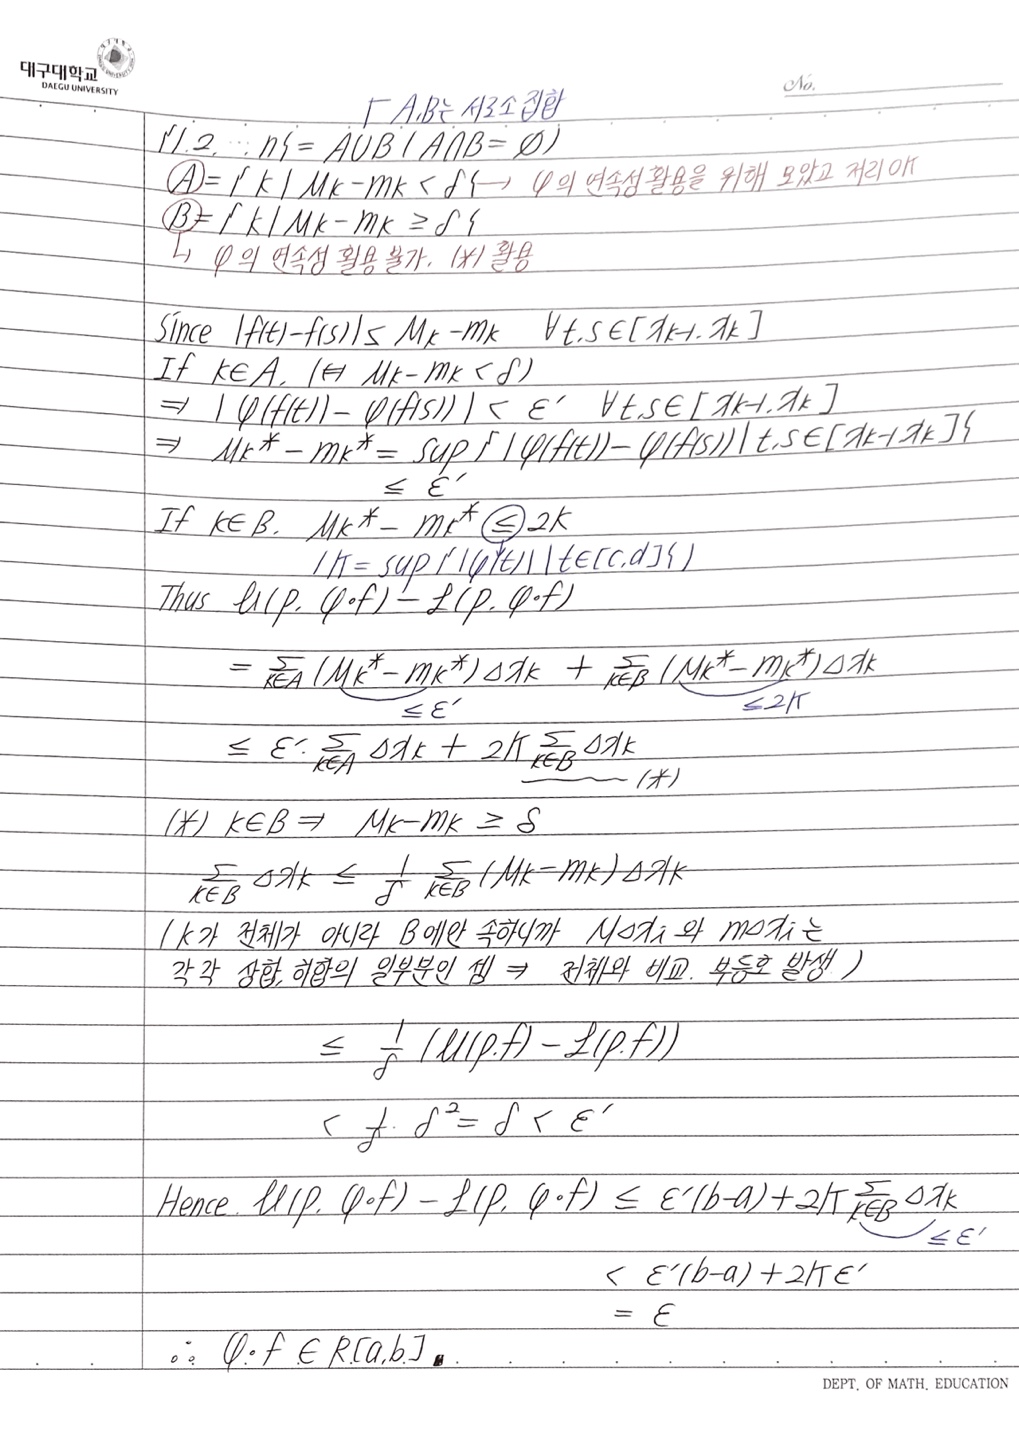 대구대학교
DAEGU UNIVERSITY
No.
┌ A,B는 서로소 집합
{1.2. ⋯ n} = A∪B (A∩B = ∅)
Ⓐ = {k | Mk-mk < δ} → φ의 연속성 활용을 위해 모았고 처리 OK
Ⓑ = {k | Mk-mk ≥ δ}
↳ φ의 연속성 활용 불가. (*) 활용
Since |f(t)-f(s)| ≤ Mk-mk ∀t,s∈[xk-1.xk]
If k∈A. (⇔ Mk-mk < δ)
⇒ |φ(f(t)) - φ(f(s))| < ε′ ∀t,s∈[xk-1.xk]
⇒ Mk* - mk* = sup{|φ(f(t)) - φ(f(s))| t,s∈[xk-1 xk]}
≤ ε′
If k∈B. Mk* - mk* ≤ 2K
(K = sup{|φ(t)| | t∈[c,d]})
Thus U(p. φ∘f) - L(p. φ∘f)
= Σ k∈A (Mk* - mk*)Δxk + Σ k∈B (Mk* - mk*)Δxk
≤ε′ ≤2K
≤ ε′· Σ k∈A Δxk + 2K Σ k∈B Δxk
(*)
(*) k∈B ⇒ Mk-mk ≥ δ
Σ k∈B Δxk ≤ 1/δ Σ k∈B (Mk-mk)Δxk
(k가 전체가 아니라 B에만 속하니까 MΔxi 와 mΔxi는
각각 상합,하합의 일부분인 셈 ⇒ 전체와 비교. 부등호 발생.)
≤ 1/δ (U(p.f) - L(p.f))
< 1/δ · δ² = δ < ε′
Hence. U(p. φ∘f) - L(p. φ∘f) ≤ ε′(b-a) + 2K Σ k∈B Δxk
≤ε′
< ε′(b-a) + 2Kε′
= ε
∴ φ∘f ∈ R[a,b.]
DEPT. OF MATH. EDUCATION